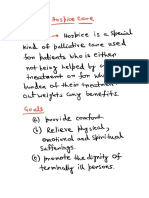 Hospice Care
→ Hospice is a special
kind of palliative care used
for patients who is either
not being helped by curative
treatment or for whom
burden of their treatment
outweights any benefits.
Goals
(a) provide comfort
(b) Relieve physical,
emotional and spiritual
sufferings.
(c) promote the dignity of
terminally ill persons.